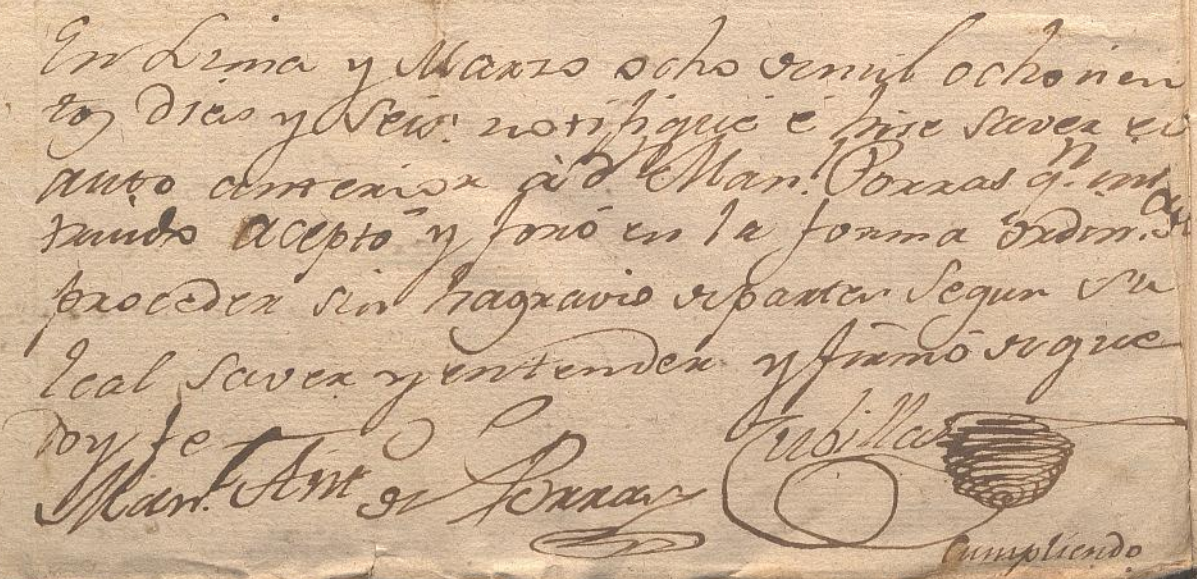 En Lima y Marzo ocho de mil ochocien
tos dies y seis: notifiqué é hise saver el
auto anterior à Dn Man.l Porras qn. ins
truido aceptó y juró en la forma ordin.a de
proceder sin hagravio de partes segun su
leal saver y entender y firmó de que
doy fe
Man.l Ant.o de Porras
Cubillas
Cumpliendo